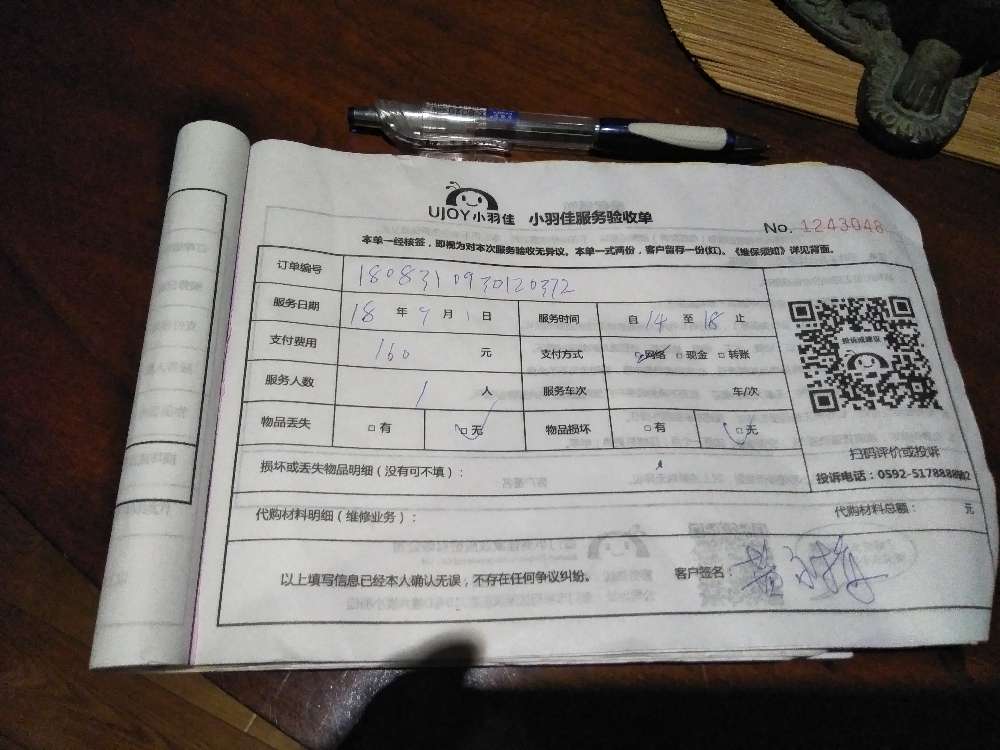 UJOY小羽佳 小羽佳服务验收单
No. 1243048
本单一经核签，即视为对本次服务验收无异议。本单一式两份，客户留存一份(红)。《维保须知》详见背面。
订单编号 1808310930120372
服务日期 18 年 9 月 1 日 服务时间 自 14 至 18 止
支付费用 160 元 支付方式 □网络 □现金 □转账
服务人数 1 人 服务车次 车/次
物品丢失 □有 □无 物品损坏 □有 □无
投诉或建议
扫码评价或投诉
投诉电话：0592-5178888转2
损坏或丢失物品明细（没有可不填）：
代购材料明细（维修业务）： 代购材料总额： 元
以上填写信息已经本人确认无误，不存在任何争议纠纷。 客户签名：